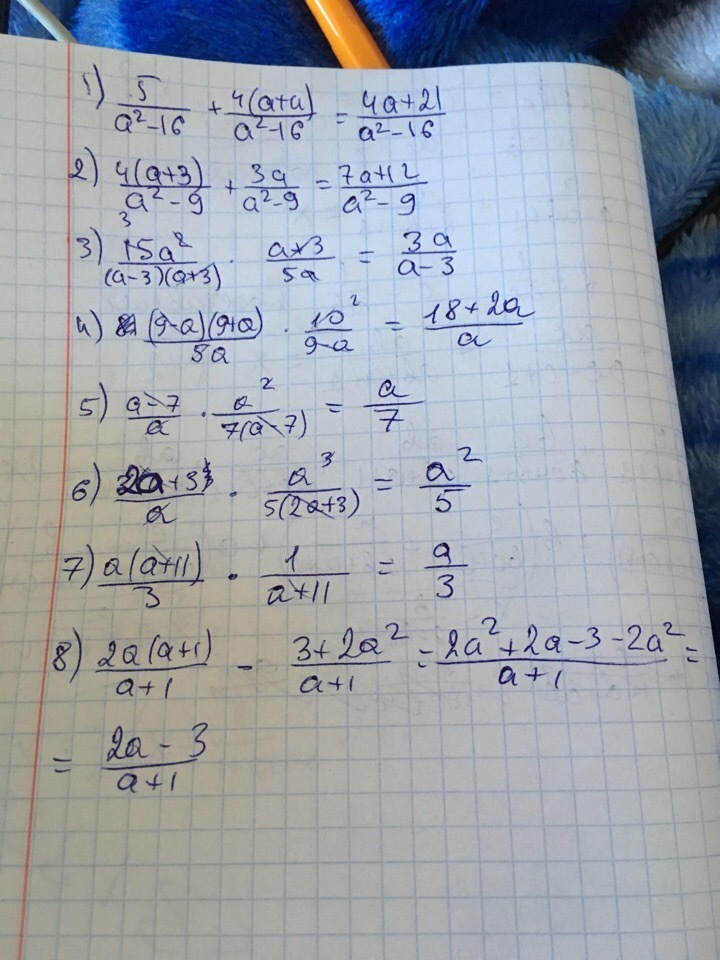 1) 5/(a²-16) + 4(a+a)/(a²-16) = (4a+21)/(a²-16)
2) 4(a+3)/(a²-9) + 3a/(a²-9) = (7a+12)/(a²-9)
3) 15a²/((a-3)(a+3)) · (a+3)/5a = 3a/(a-3) 3
4) (9-a)(9+a)/5a · 10/(9-a) = (18+2a)/a 2
5) (a-7)/a · a²/(7(a-7)) = a/7
6) (2a+3)/a · a³/(5(2a+3)) = a²/5
7) a(a+11)/3 · 1/(a+11) = a/3
8) 2a(a+1)/(a+1) - (3+2a²)/(a+1) = (2a²+2a-3-2a²)/(a+1) =
= (2a-3)/(a+1)